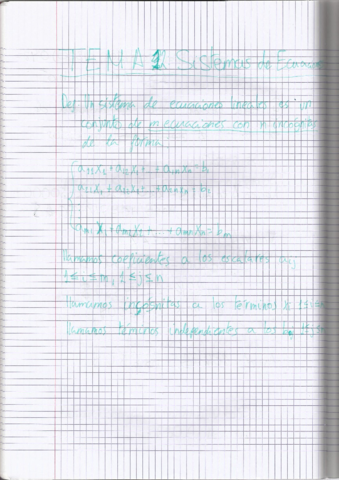 TEMA 1 Sistemas de Ecuacion
Def Un sistema de ecuaciones lineales es un
conjunto de m ecuaciones con n incógnitas
de la forma
a₁₁x₁+a₁₂x₂+ +a₁ₙxₙ=b₁
a₂₁x₁+a₂₂x₂+...+a₂ₙxₙ=b₂
aₘ₁x₁+aₘ₂x₂+...+aₘₙxₙ=bₘ
Llamamos coeficientes a los escalares aᵢⱼ
1≤i≤m, 1≤j≤n
Llamamos incógnitas a los términos
Llamamos términos independientes a los